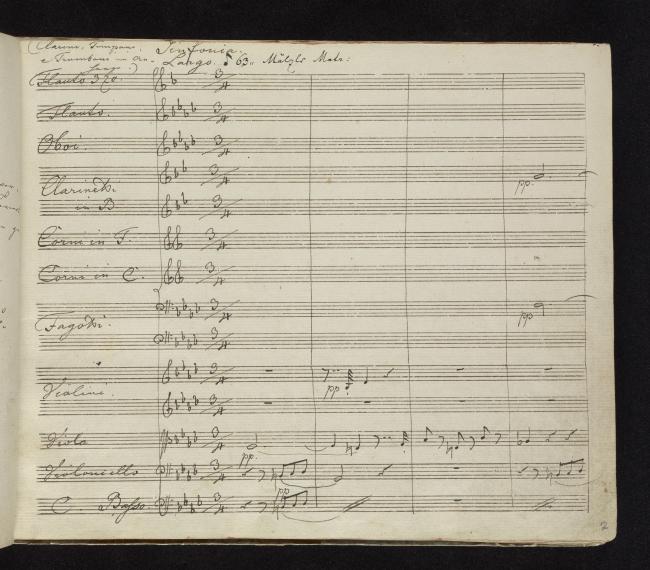 Clarini, Timpani,
e Tromboni
Sinfonia.
Largo. 63. Mälzls Metr:
Flauto 3zo.
Flauto.
Oboi.
Clarinetti
in B.
pp.
Corni in F.
Corni in C.
Fagotti.
pp
Violini.
pp
Viola
pp.
Violoncello
pp
C. Basso.
2